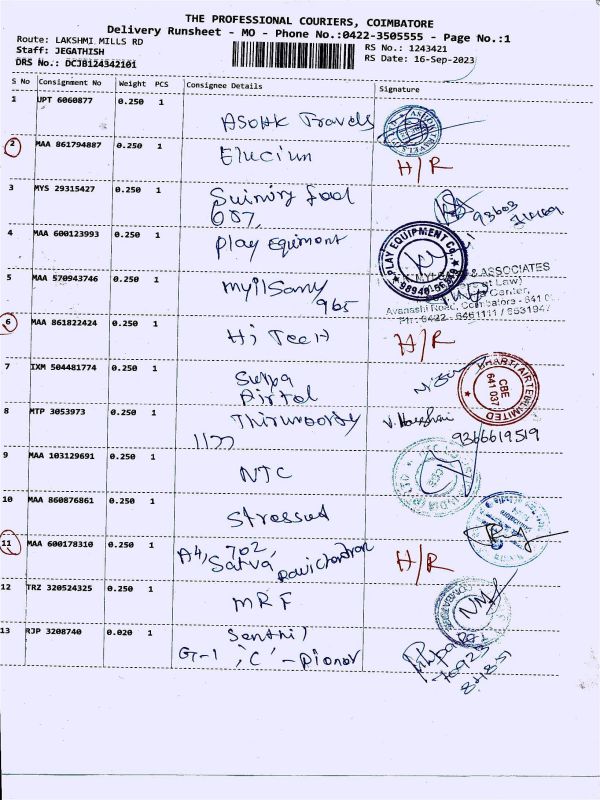 THE PROFESSIONAL COURIERS, COIMBATORE
Delivery Runsheet - MO - Phone No.:0422-3505555 - Page No.:1
Route: LAKSHMI MILLS RD
RS No.: 1243421
Staff: JEGATHISH
RS Date: 16-Sep-2023
DRS No.: DCJB124342101
S No Consignment No Weight PCS Consignee Details Signature
1 UPT 6060877 0.250 1
Asohk Travels
2 MAA 861794887 0.250 1
Elucium H/R
3 MYS 29315427 0.250 1
food
687,
93603
4 MAA 600123993 0.250 1
play equiment
PLAY EQUIPMENT CO.,
5 MAA 570943746 0.250 1
& ASSOCIATES
myilSamy
965
Law)
Center,
Avanashi Road, Coimbatore - 641 0
6 MAA 861822424 0.250 1
Hi Tech H/R
7 IXM 504481774 0.250 1
Surya
Airtel
BHARTI AIRTEL LIMITED
CBE
641 037
8 MTP 3053973 0.250 1
Thirumoorthy
9366619519
9 MAA 103129691 0.250 1
NTC
10 MAA 860876861 0.250 1
Stressed
11 MAA 600178310 0.250 1
A4, 702,
Satva Ravichandran H/R
12 TRZ 320524325 0.250 1
MRF
13 RJP 3208740 0.020 1
Senthil
G-1 'C' - Pionor